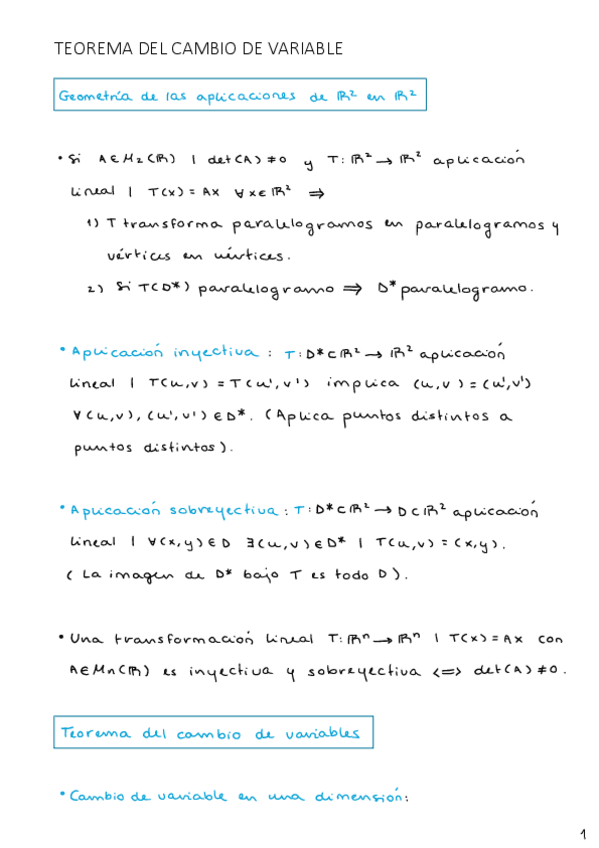 TEOREMA DEL CAMBIO DE VARIABLE
Geometría de las aplicaciones de ℝ² en ℝ²
• Si A∈M₂(ℝ) | det(A) ≠ 0 y T: ℝ² → ℝ² aplicación
lineal | T(x) = Ax ∀x∈ℝ² ⇒
1) T transforma paralelogramos en paralelogramos y
vértices en vértices.
2) Si T(D*) paralelogramo ⇒ D* paralelogramo.
• Aplicación inyectiva : T: D*⊂ℝ² → ℝ² aplicación
lineal | T(u,v) = T(u',v') implica (u,v) = (u',v')
∀(u,v), (u',v') ∈ D*. (Aplica puntos distintos a
puntos distintos).
• Aplicación sobreyectiva : T: D*⊂ℝ² → D⊂ℝ² aplicación
lineal | ∀(x,y)∈D ∃(u,v)∈D* | T(u,v) = (x,y).
( La imagen de D* bajo T es todo D ).
• Una transformación lineal T: ℝⁿ → ℝⁿ | T(x) = Ax con
A∈Mn(ℝ) es inyectiva y sobreyectiva <=> det(A) ≠ 0.
Teorema del cambio de variables
• Cambio de variable en una dimensión:
1